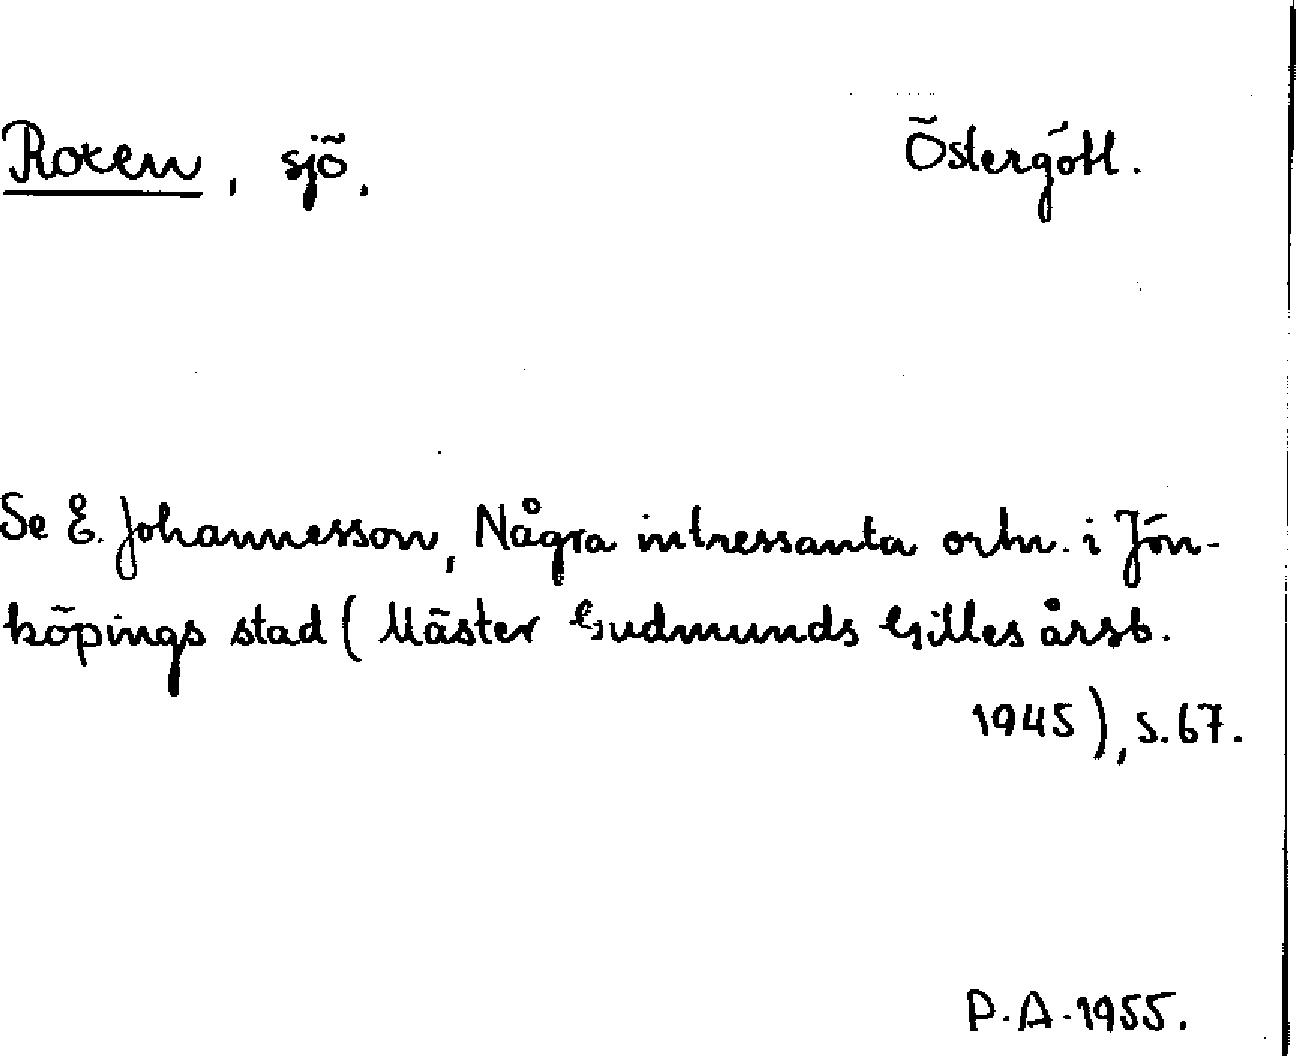 Roxen, sjö. Östergötl.
Se E. Johannesson, Några intressanta ortn. i Jön-
köpings stad (Mäster Gudmunds Gilles årsb.
1945), s. 67.
P.A. 1955.